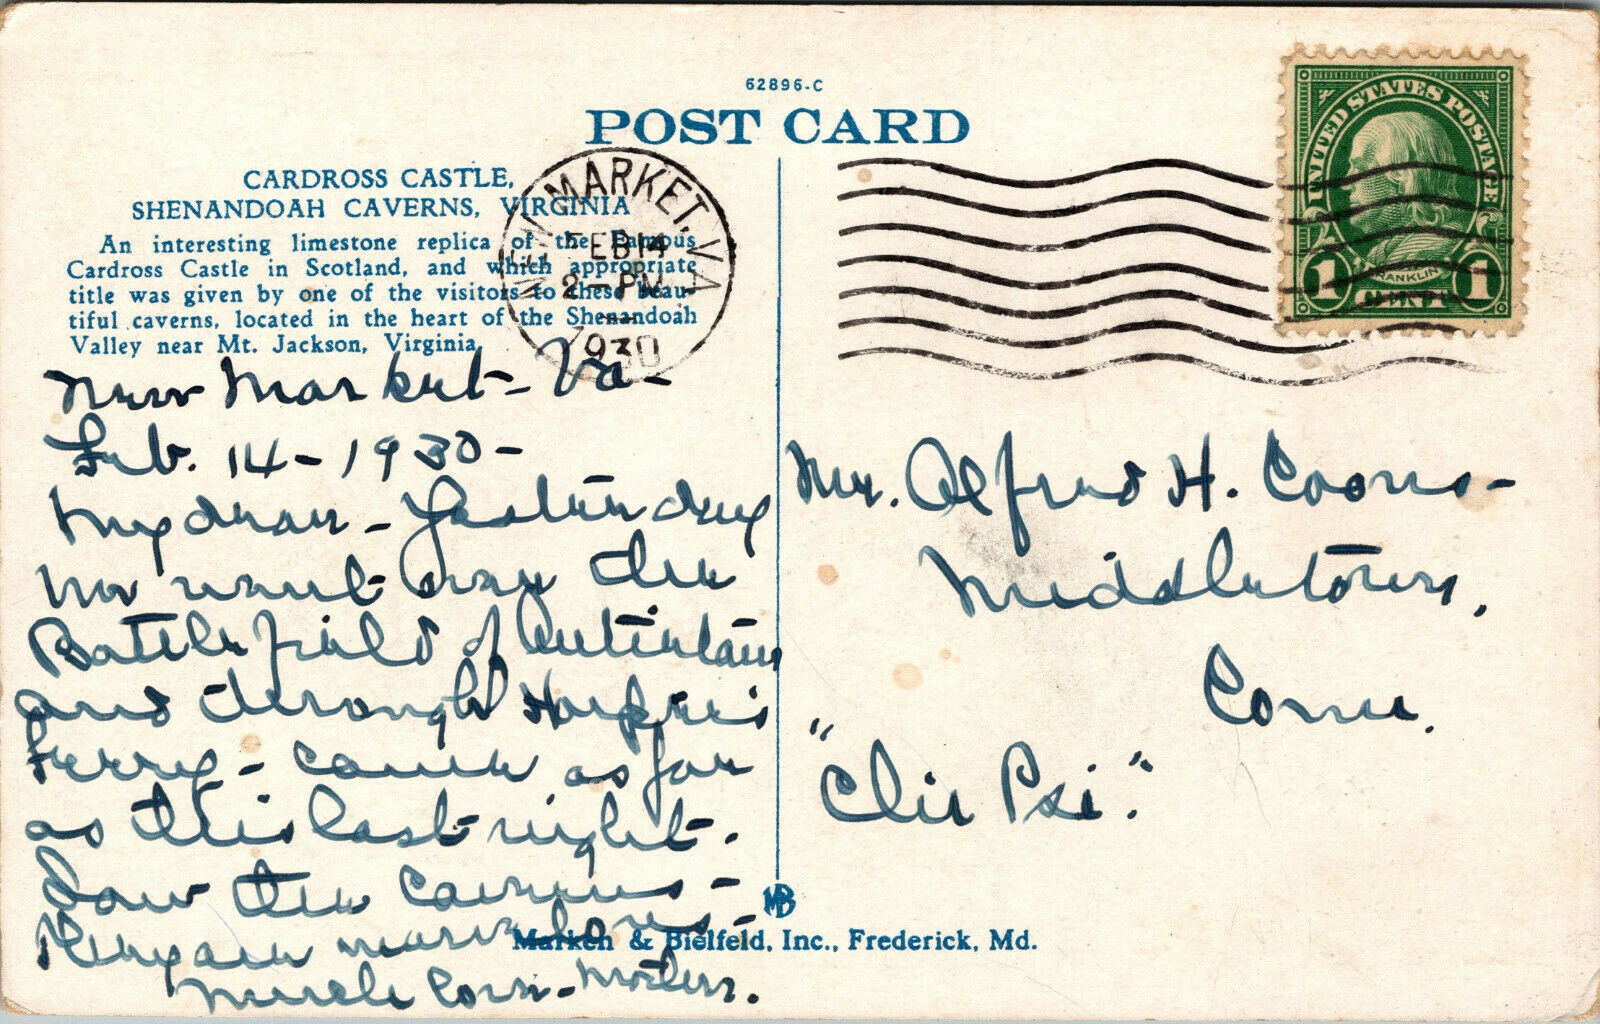 62896-C
POST CARD
CARDROSS CASTLE,
SHENANDOAH CAVERNS, VIRGINIA
An interesting limestone replica of the Famous
Cardross Castle in Scotland, and which appropriate
title was given by one of the visitors to these beau-
tiful caverns, located in the heart of the Shenandoah
Valley near Mt. Jackson, Virginia.
NEW MARKET, VA.
FEB 14
2 - PM
1930
UNITED STATES POSTAGE
FRANKLIN
1 CENT 1
New Market - Va -
Feb. 14 - 1930 -
My dear - Yesterday
we went over the
Battlefield of Antietam
and through Harper's
Ferry - came as far
as this last night.
Saw the Caverns -
They are marvelous -
Much love - Mother.
Mr. Alfred H. Coons -
Middletown,
Conn.
"Chi Psi."
MB
Marken & Bielfeld, Inc., Frederick, Md.